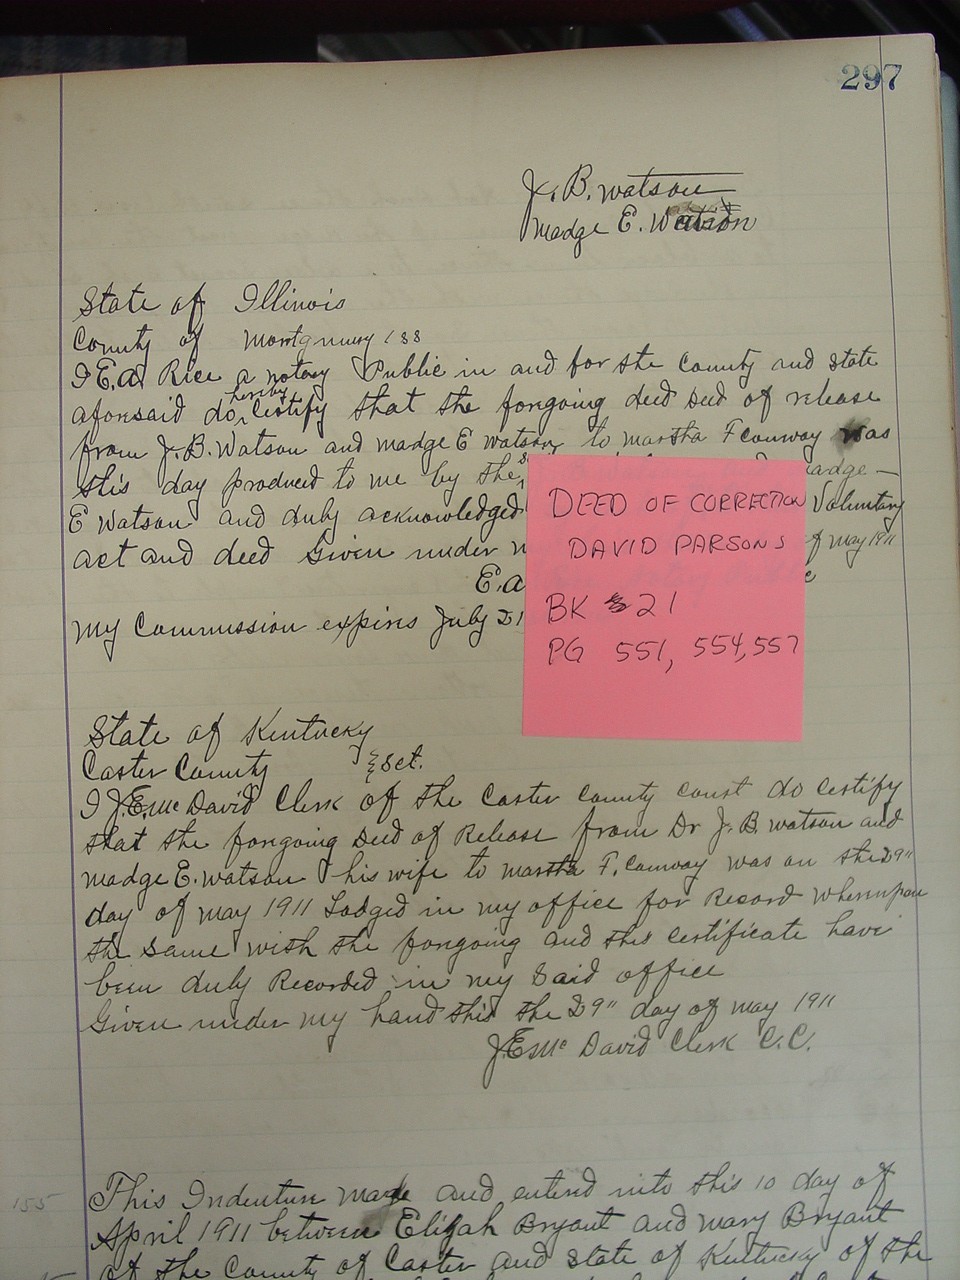 297
J. B. Watson
Madge E. Watson
State of Illinois
County of Montgomery ss
I E.A. Rice a notary Public in and for the County and State
aforesaid do hereby certify that the forgoing deed Deed of release
from J. B. Watson and Madge E Watson to Martha F Conway was
this day produced to me by the Madge
E Watson and duly acknowledged Voluntary
act and deed Given under of May 1911
E.A
My Commission expires July 21
DEED OF CORRECTION
DAVID PARSONS
BK 21
PG 551, 554, 557
State of Kentucky
Carter County } Sct.
I J.E. McDavid Clerk of the Carter County court do certify
that the forgoing Deed of Release from Dr J. B. Watson and
Madge E. Watson his wife to Martha F. Conway was on the 29"
day of May 1911 Lodged in my office for Record whereupon
the same with the forgoing and this certificate have
been duly Recorded in my Said office
Given under my hand this the 29" day of May 1911
J.E. McDavid Clerk C.C.
155
This Indenture made and entered into this 10 day of
April 1911 between Elijah Bryant and Mary Bryant
of the County of Carter and State of Kentucky of the